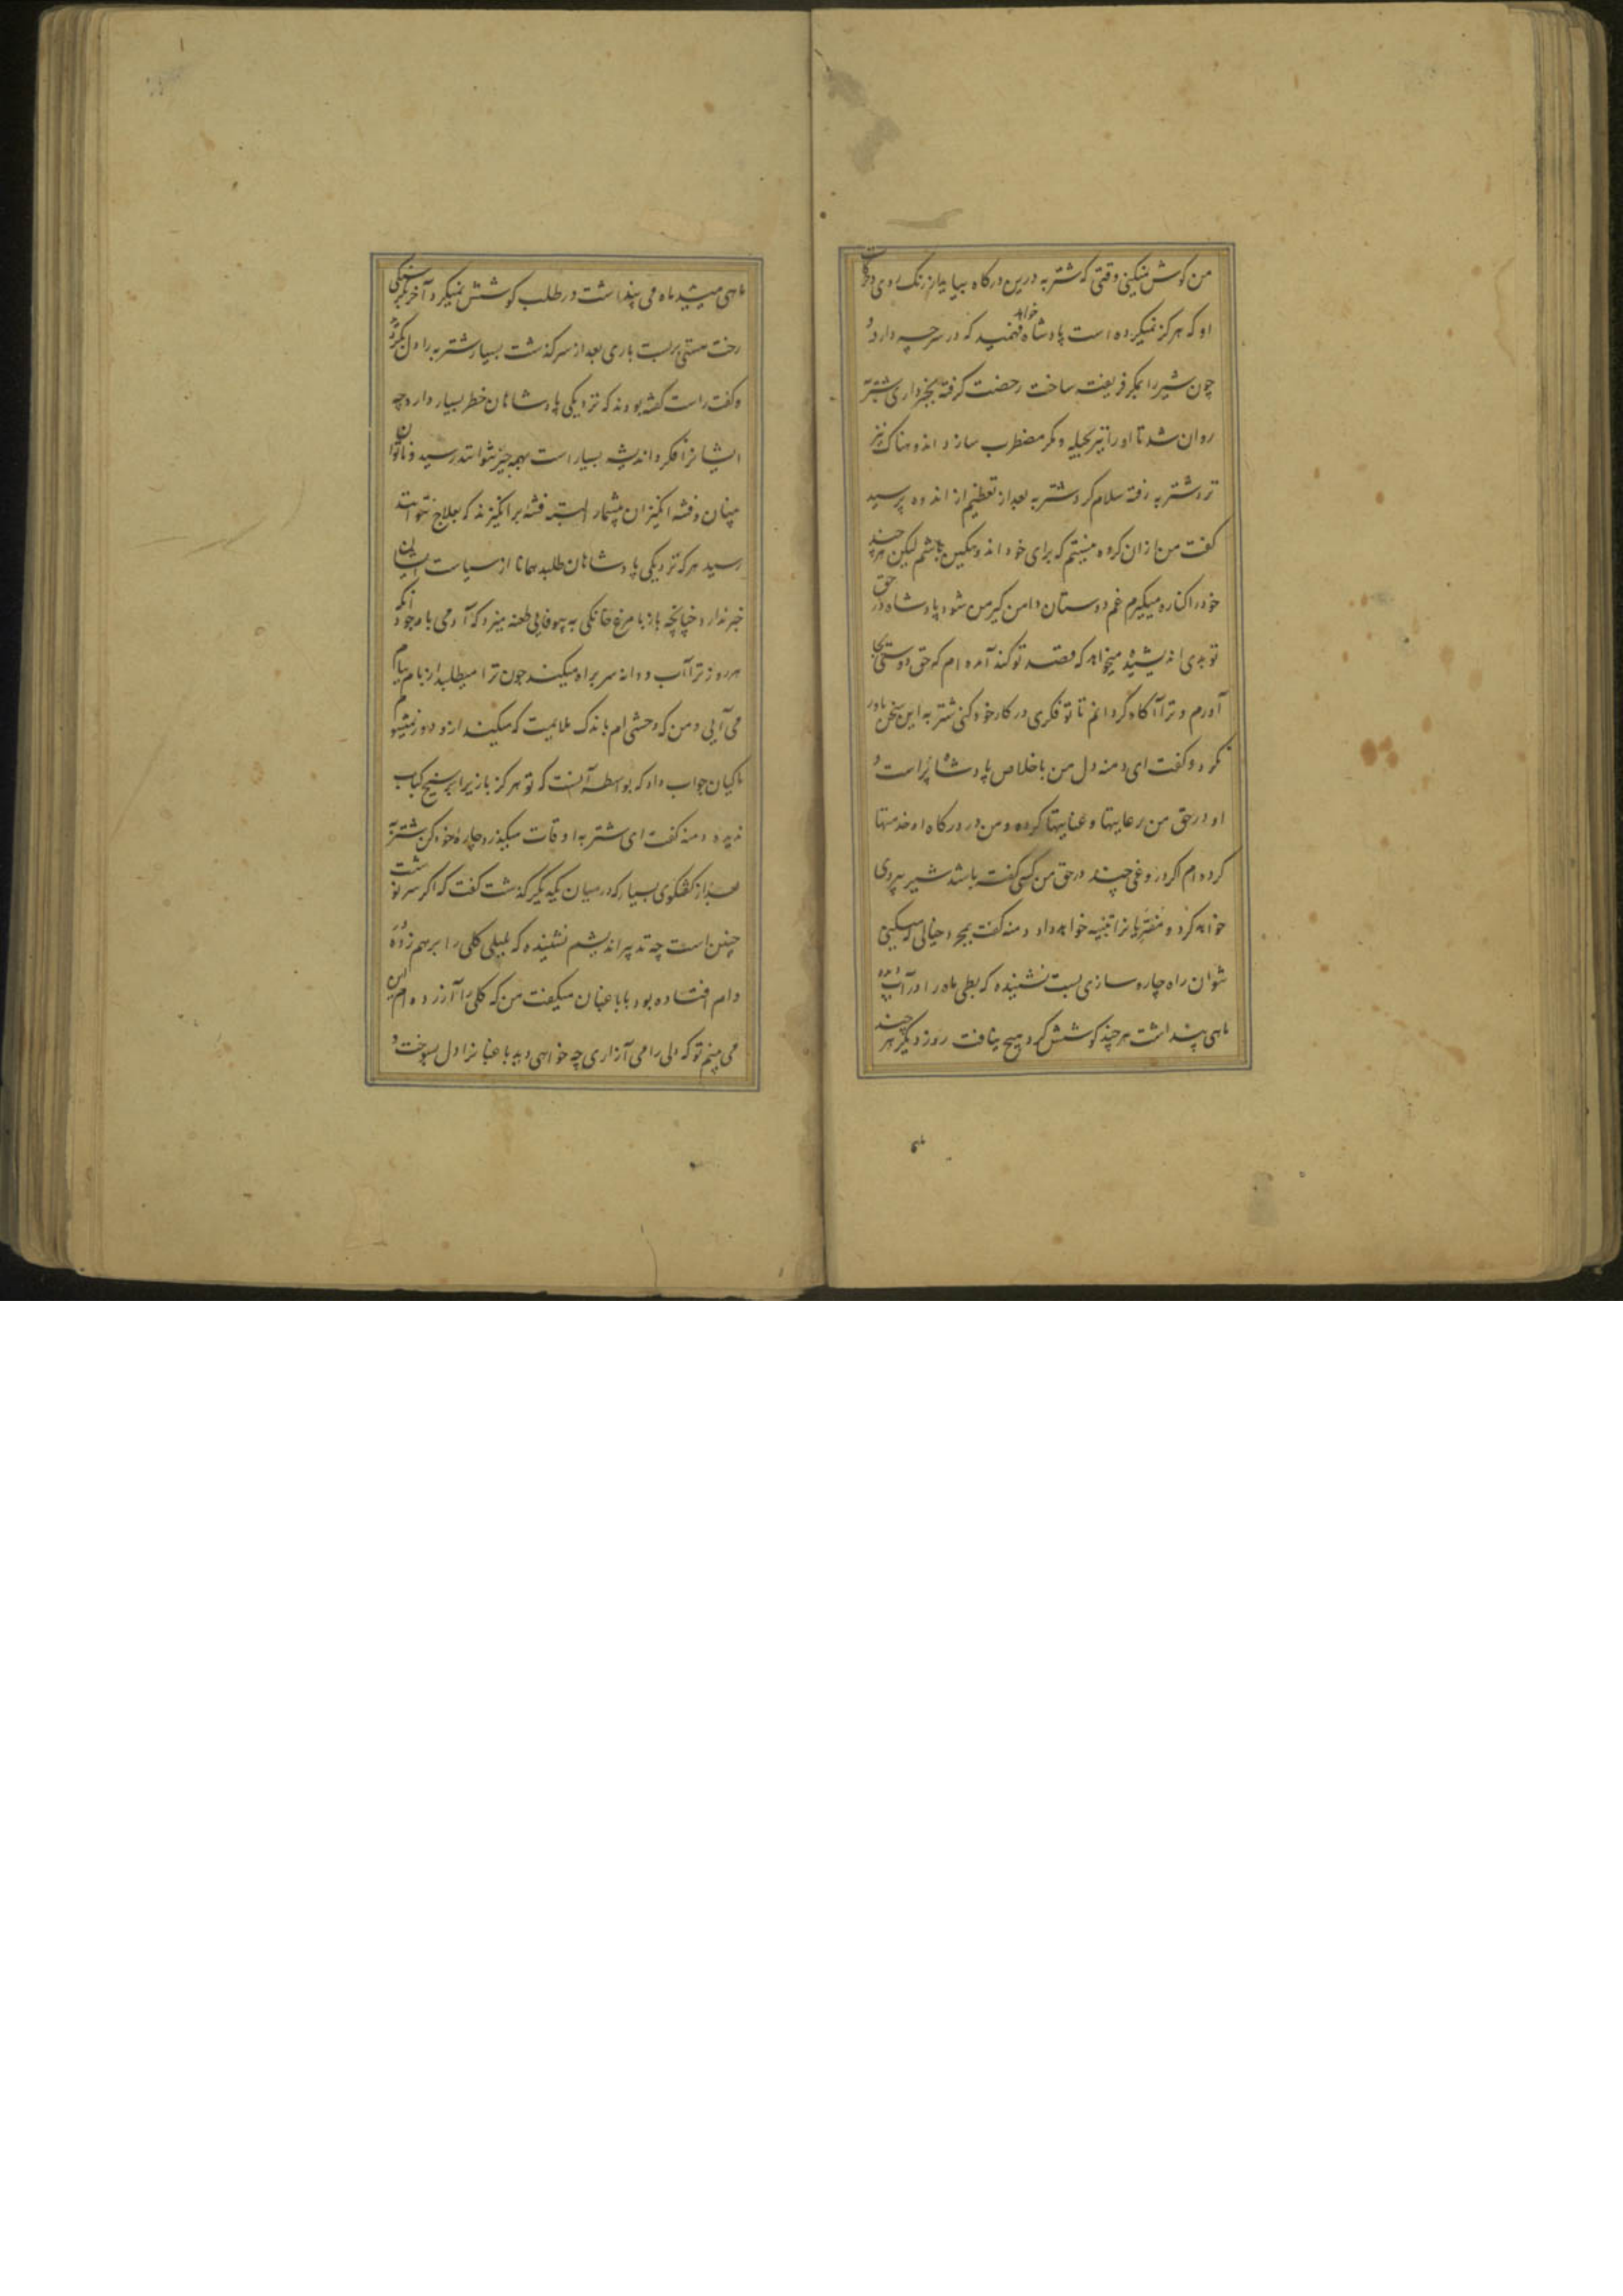 من گوش نمیکنی وقتی که شتربه درین درگاه بیاید از رنگ روی و حرکات
او که هرگز نمیکرده است پادشاه خواهد فهمید که در سر چه دارد و
چون شیر را بمکر فریفته ساخت رخصت گرفته بخبرداری شتربه
روان شد تا او را نیز بحیله و مکر مضطرب سازد اندوهناک نزد
شتربه رفته سلام کرد شتربه بعد از تعظیم از اندوه پرسید
گفت من از ان گروه نیستم که برای خود اندوهگین باشم لیکن هر چند
خود را کناره میگیرم غم دوستان دامن گیر من شود پادشاه در حق
تو بدی اندیشیده میخواهد که قصد تو کند آمده ام که حق دوستی بجا
آورم و ترا آگاه گردانم تا تو فکری در کار خود کنی شتربه این سخن باور
نکرد و گفت ای دمنه دل من باخلاص پادشاه پر است و
او در حق من رعایتها و عنایتها کرده و من در درگاه او خدمتها
کرده ام اگر دروغی چند در حق من کسی گفته باشد شیر پیروی
خواهد کرد و مفتریانرا تنبیه خواهد داد دمنه گفت بمجرد خیالی که میکنی
نتوان راه چاره سازی بست نشنیده که بطی ماه را در آب دیده
ماهی پنداشت هر چند کوشش کرد هیچ نیافت روز دیگر هر چند
ماهی
ماهی میدید ماه می پنداشت در طلب کوشش نمیکرد آخر بگرسنگی
رخت هستی بربست باری بعد از سرگذشت بسیار شتربه را دل بگردید
و گفت راست گفته بودند که نزدیکی پادشاهان خطر بسیار دارد چه
ایشانرا فکر و اندیشه بسیار است بهمه چیز نتوانند رسید و ناتوان
بینان و فتنه انگیزان بیشمار اند فتنه برانگیزند که بعلاج نتوانند
رسید هر که نزدیکی پادشاهان طلبد همانا از سیاست ایشان
خبر ندارد چنانچه باز با مرغ خانگی به بیوفایی طعنه میزد که آدمی با وجود آنکه
هر روز ترا آب و دانه سربراه میکند چون ترا میطلبد از بام ببام
می آیی و من که وحشی ام باندک ملایمت که میکنند ازو دور نمیشوم
ماکیان جواب داد که بواسطه آنست که تو هرگز باز را بر سیخ کباب
ندیده دمنه گفت ای شتربه اوقات میگذرد چاره خود کن شتربه
بعد از گفتگوی بسیار که در میان یکدیگر گذشت گفت که اگر سرنوشت
چنین است چه تدبیر اندیشم نشنیده که بلبلی گلی را برهم زده در
دام افتاده بود با باغبان میگفت من که گلی را آزرده ام این
می بینم تو که دلی را می آزاری چه خواهی دید باغبانرا دل بسوخت و